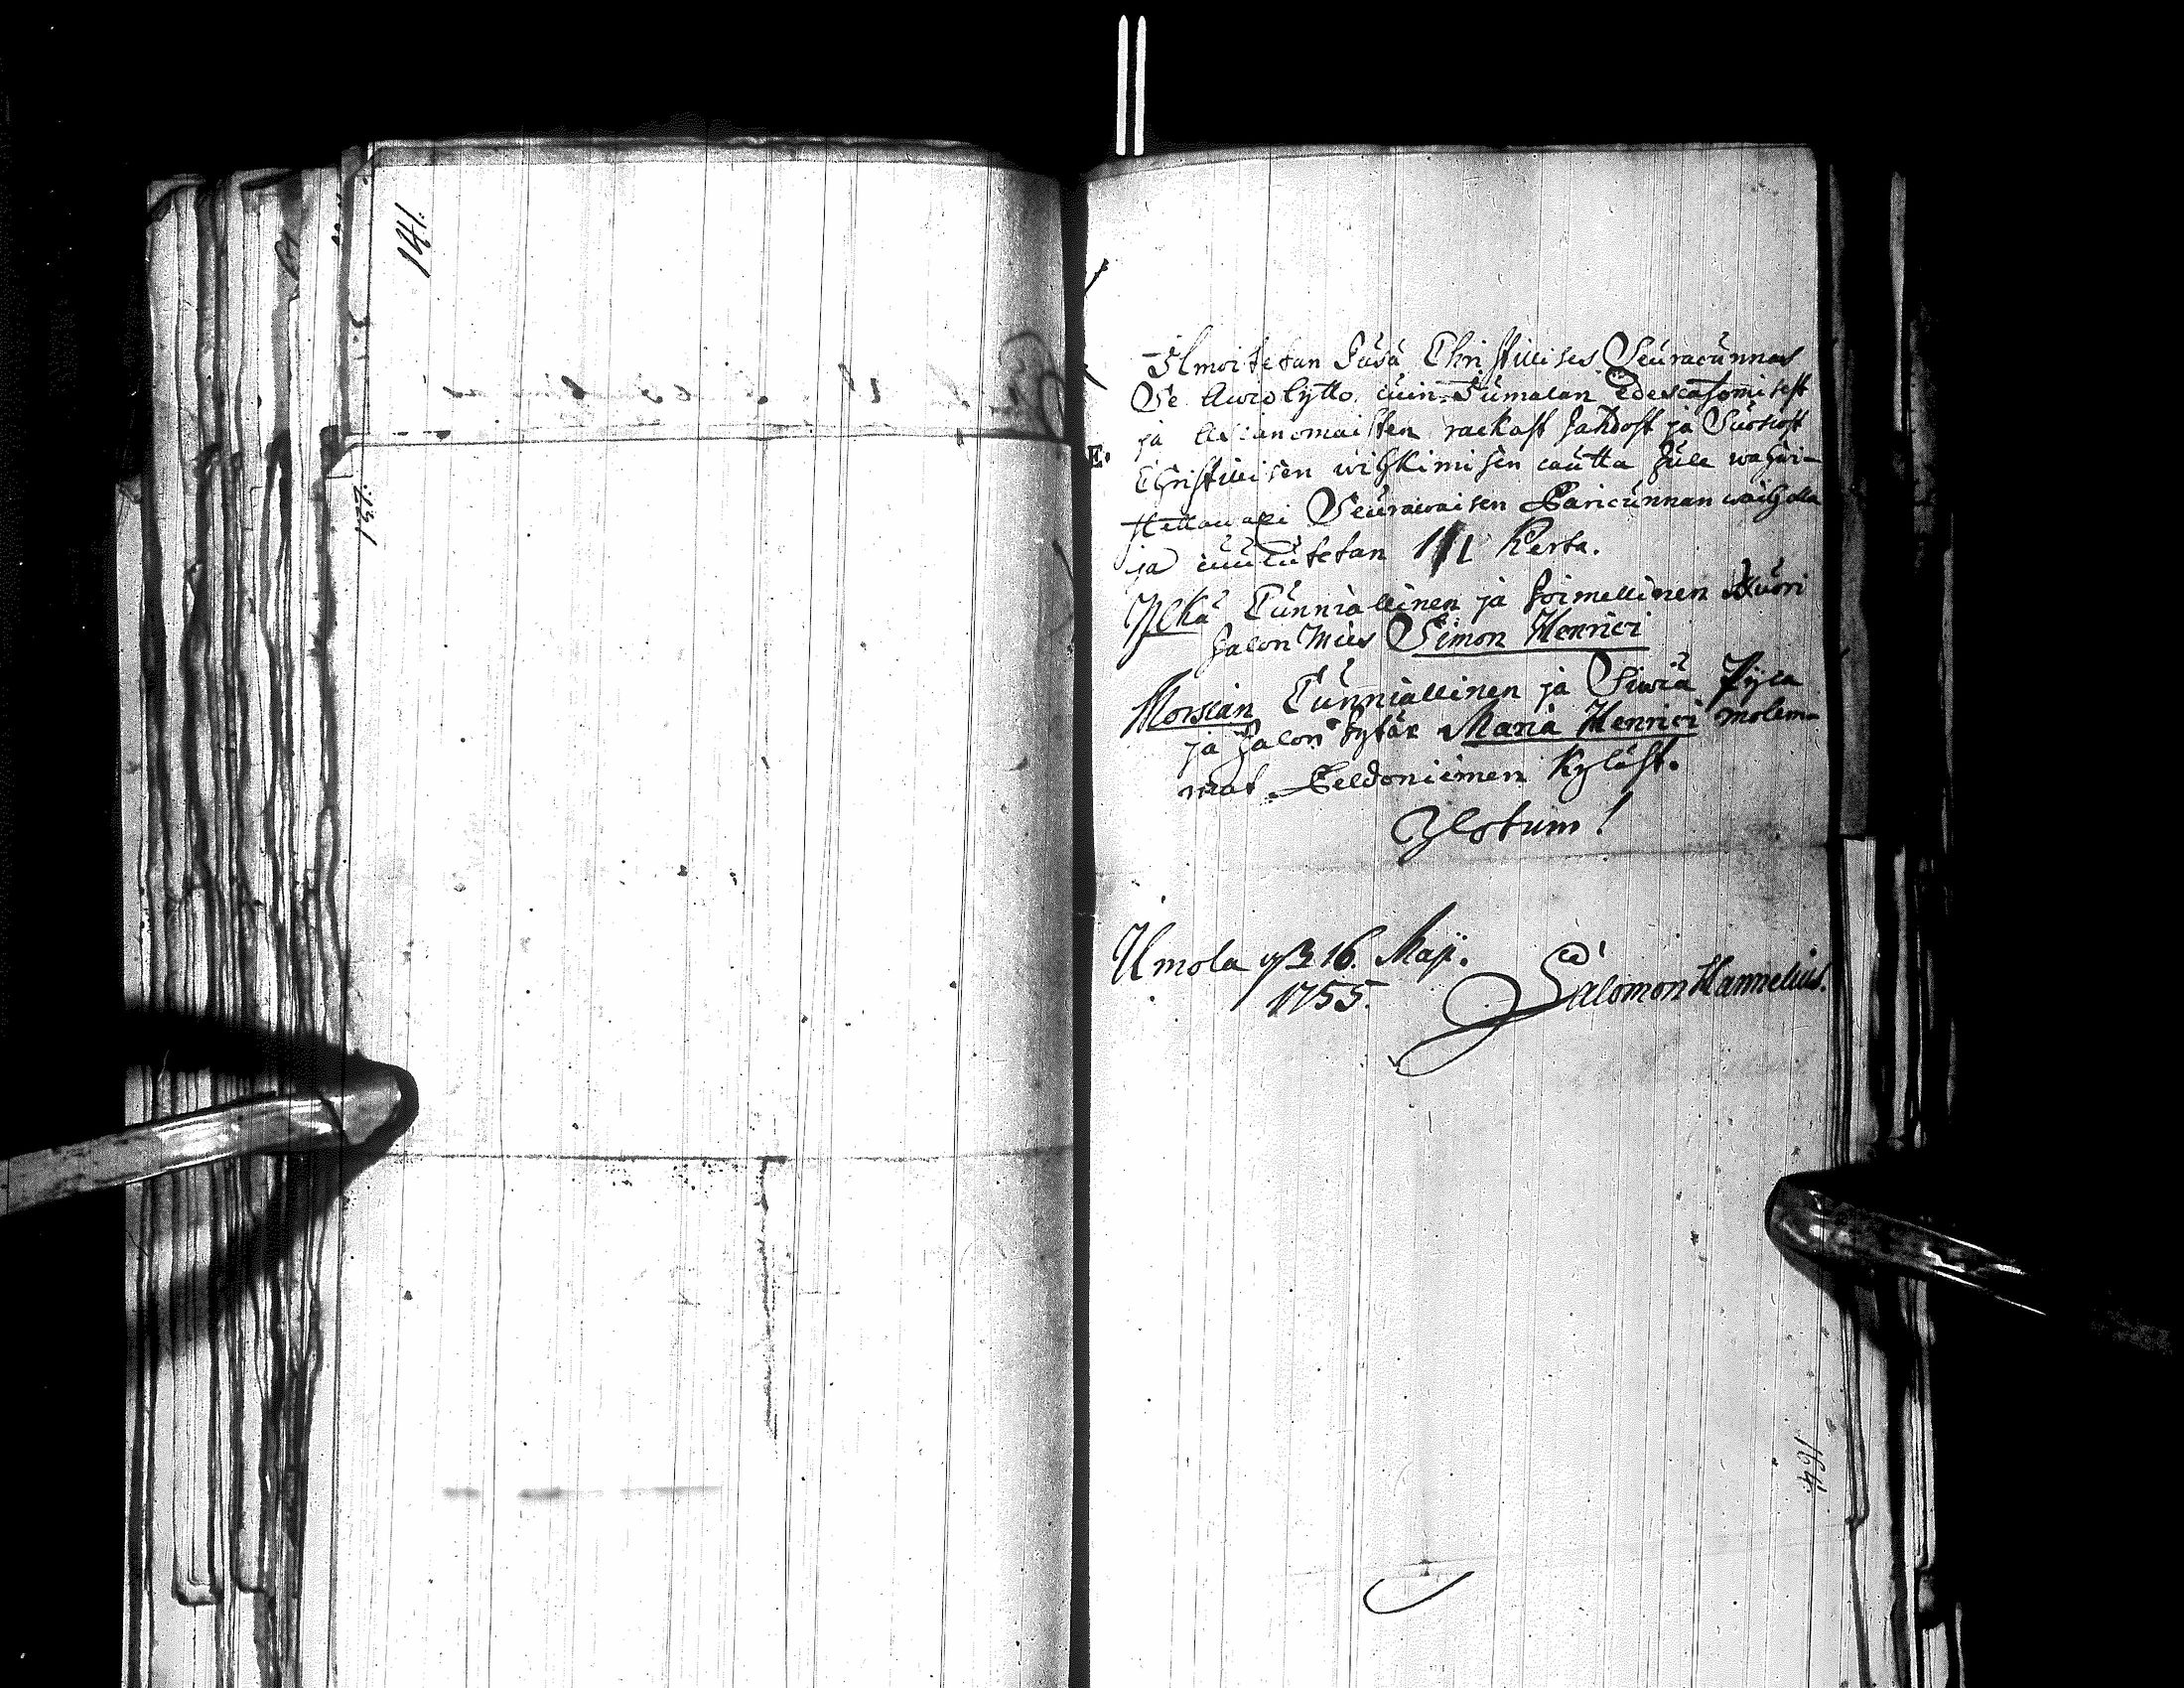 141.
137.
E.
Ilmoitetan Täsä Christillises Seuracunnas
Se Awiokytto cuin Jumalan Edescatzomisest
ja Asianomaisten rackast Hahdost ja Suosiost
Christillisen wihkimisen cautta Tule wahwi-
stettawaxi Seurawaisen Pariscunnan waihella
ja cuulutetan 1 Kerta.
Ylkä Cunniallinen ja Toimellinen Nuori
Talon Mies Simon Henrici
Morsian Cunniallinen ja Siwiä Pijca
ja Talon tytär Maria Henrici molem-
mat Peldoniemen Kyläst.
Ylotum!
Umola 16. Maji.
1755. Salomon Hannelius.
164.